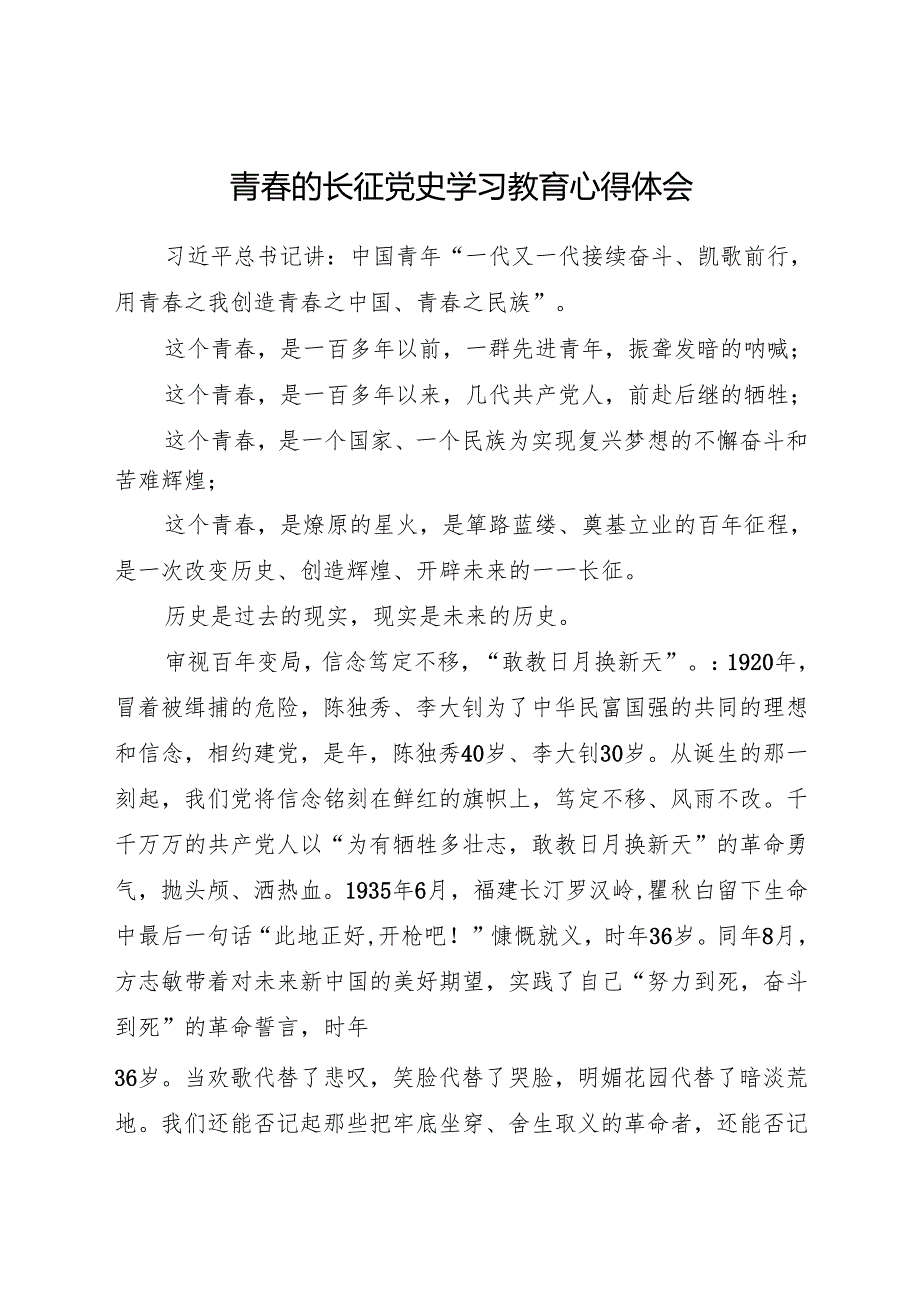 青春的长征党史学习教育心得体会
习近平总书记讲：中国青年“一代又一代接续奋斗、凯歌前行，
用青春之我创造青春之中国、青春之民族”。
这个青春，是一百多年以前，一群先进青年，振聋发喑的呐喊；
这个青春，是一百多年以来，几代共产党人，前赴后继的牺牲；
这个青春，是一个国家、一个民族为实现复兴梦想的不懈奋斗和
苦难辉煌；
这个青春，是燎原的星火，是筚路蓝缕、奠基立业的百年征程，
是一次改变历史、创造辉煌、开辟未来的一一长征。
历史是过去的现实，现实是未来的历史。
审视百年变局，信念笃定不移，“敢教日月换新天”。：1920年，
冒着被缉捕的危险，陈独秀、李大钊为了中华民富国强的共同的理想
和信念，相约建党，是年，陈独秀40岁、李大钊30岁。从诞生的那一
刻起，我们党将信念铭刻在鲜红的旗帜上，笃定不移、风雨不改。千
千万万的共产党人以“为有牺牲多壮志，敢教日月换新天”的革命勇
气，抛头颅、洒热血。1935年6月，福建长汀罗汉岭,瞿秋白留下生命
中最后一句话“此地正好,开枪吧！”慷慨就义，时年36岁。同年8月，
方志敏带着对未来新中国的美好期望，实践了自己“努力到死，奋斗
到死”的革命誓言，时年
36岁。当欢歌代替了悲叹，笑脸代替了哭脸，明媚花园代替了暗淡荒
地。我们还能否记起那些把牢底坐穿、舍生取义的革命者，还能否记